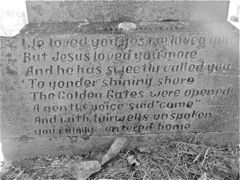 We loved you yes we loved you
But Jesus loved you more
And he has sweetly called you
To yonder shining shore
The Golden Gates were opened
A gentle voice said "come"
And with farewells unspoken
you calmly entered home